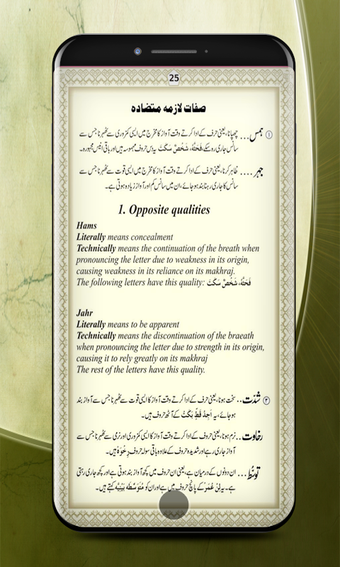 25
صفات لازمہ متضادہ
① ہمس... چھپانا، یعنی حرف کے ادا کرتے وقت آواز کا مخرج میں ایسی کمزوری سے ٹھہرنا جس سے
سانس جاری رہ سکے فَحَثَّهٗ شَخْصٌ سَكَتَ یہ دس حروف مہموسہ ہیں اور باقی انیس مجہورہ۔
جہر... ظاہر کرنا، یعنی حرف کے ادا کرتے وقت آواز کا مخرج میں ایسی قوت سے ٹھہرنا جس سے
سانس کا جاری رہنا بند ہو جائے، ان میں سانس کم اور آواز زیادہ ہوتی ہے۔
1. Opposite qualities
Hams
Literally means concealment
Technically means the continuation of the breath when
pronouncing the letter due to weakness in its origin,
causing weakness in its reliance on its makhraj.
The following letters have this quality: فَحَثَّهٗ شَخْصٌ سَكَتَ
Jahr
Literally means to be apparent
Technically means the discontinuation of the braeath
when pronouncing the letter due to strength in its origin,
causing it to rely greatly on its makhraj
The rest of the letters have this quality.
② شدّت.. سخت ہونا، یعنی حرف کے ادا کرتے وقت آواز کا ایسی قوت سے ٹھہرنا جس سے آواز بند
ہو جائے، یہ اَجِدُ قَطٍّ بَكَتْ کے آٹھ حروف ہیں۔
رخاوت.. نرم ہونا، یعنی حروف کے ادا کرتے وقت آواز کا ایسی کمزوری اور نرمی سے ٹھہرنا جس سے
آواز جاری رہے اور شدیدہ حروف کے علاوہ باقی سولہ حروف رِخْوَہ ہیں۔
توسّط... ان دونوں کے درمیان ہے، یعنی ان حروف میں کچھ آواز بند ہوتی ہے اور کچھ جاری رہتی
ہے۔ یہ لِنْ عُمَرُ کے پانچ حروف ہیں اور ان کو مُتَوَسِّطَہ کہتے ہیں۔